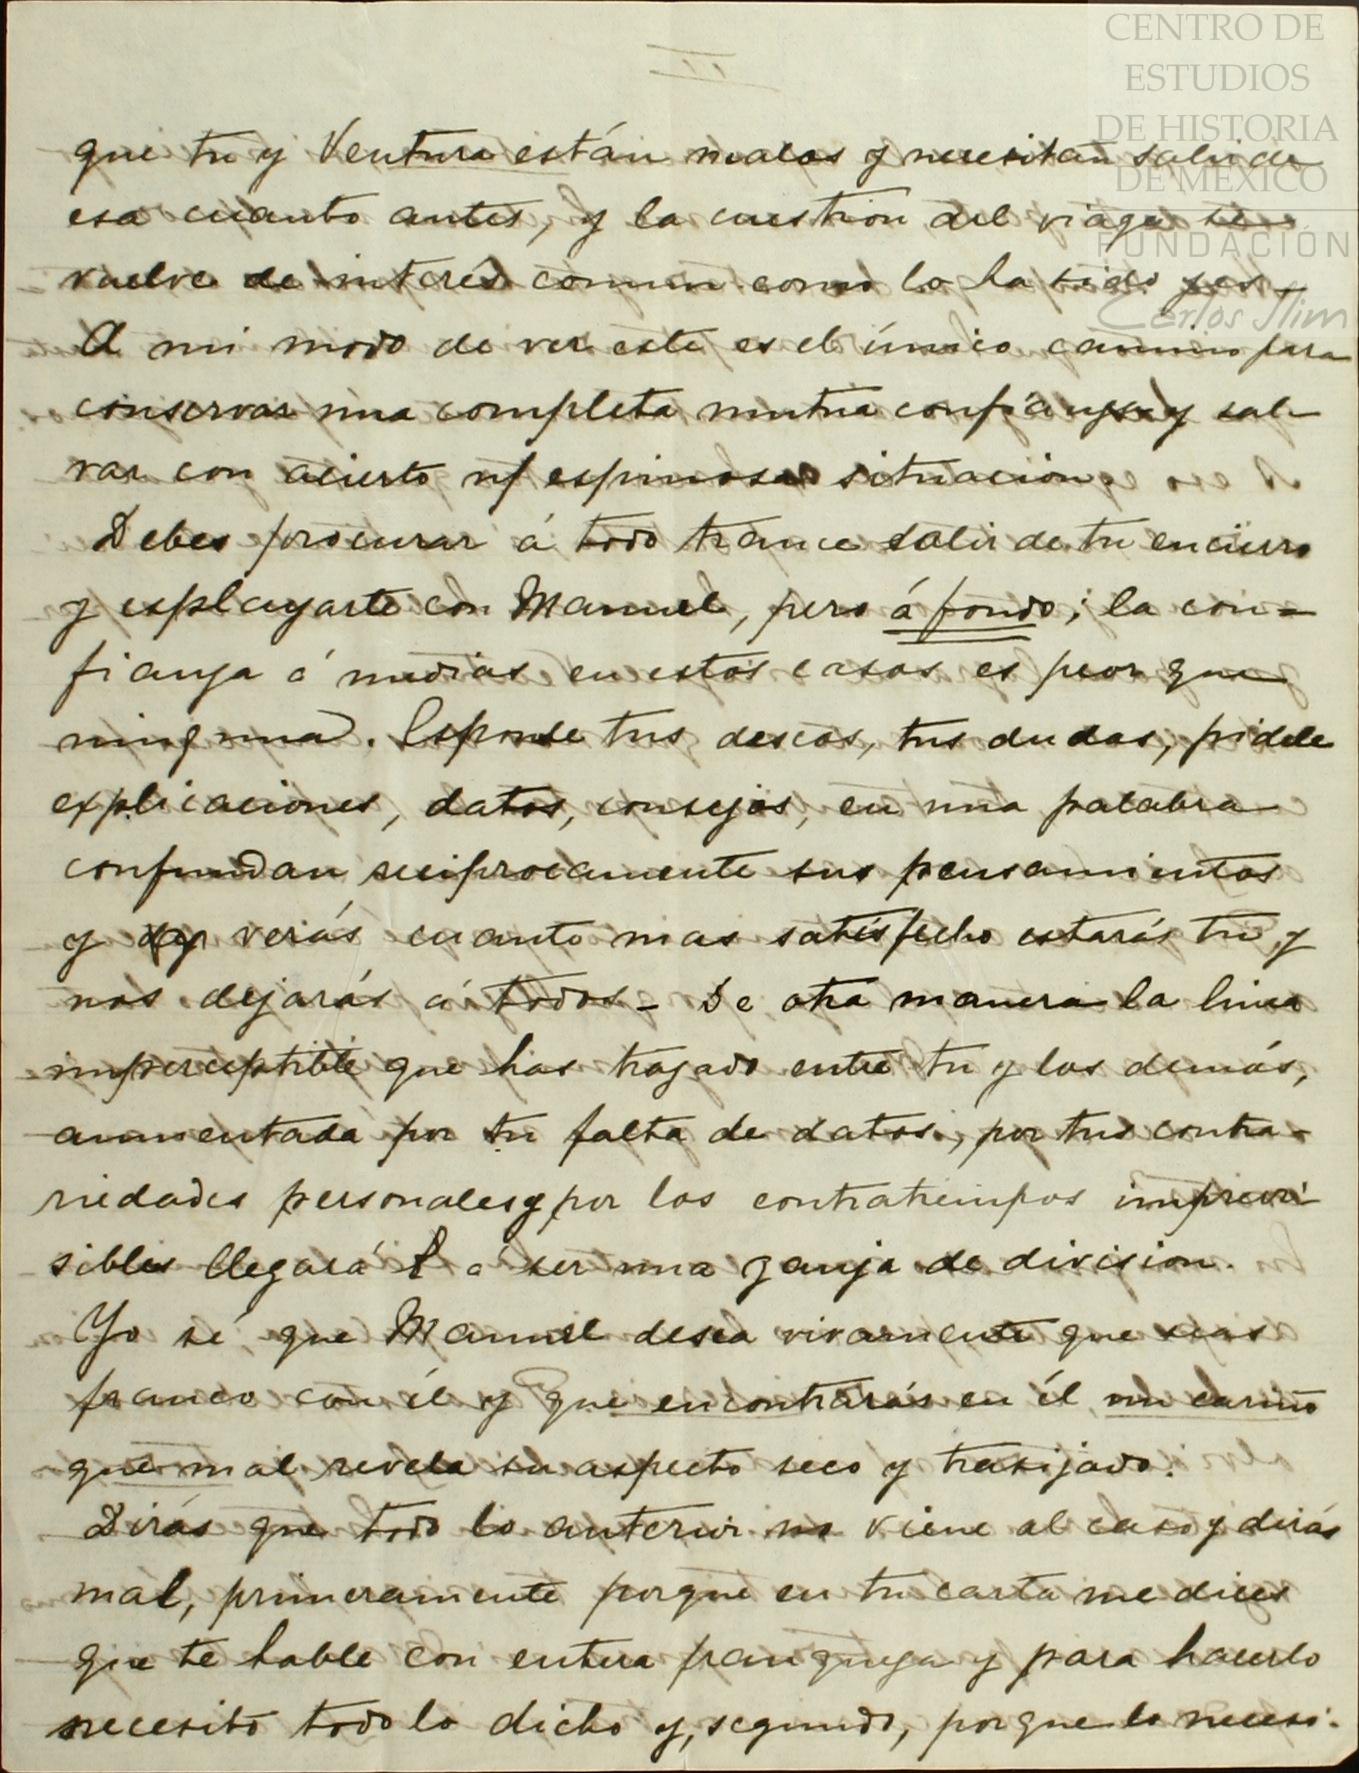 CENTRO DE
ESTUDIOS
DE HISTORIA
DE MÉXICO
FUNDACIÓN
Carlos Slim
II
que tu y Ventura están malos y necesitan salir de
esa cuanto antes, y la cuestion del viage se
vuelve de interés comun como lo ha sido
A mi modo de ver este es el único camino para
conservar una completa mutua confianza y sal-
var con acierto espinosa situación.
Debes procurar á todo trance salir de tu encierro
y esplayarte con Manuel, pero á fondo; la con-
fianza á medias en estos casos es peor que
ninguna. Esponle tus deseos, tus dudas, pidele
explicaciones, datos, consejos, en una palabra
confundan reciprocamente sus pensamientos
y verás cuanto mas satisfecho estarás tu, y
nos dejarás á todos - De otra manera la linea
imperceptible que has trazado entre tu y los demás,
aumentada por tu falta de datos, por tus contra-
riedades personales y por los contratiempos imprevi-
sibles llegará á ser una zanja de division.
Yo sé que Manuel desea vivamente que seas
franco con él y que encontrarás en él un cariño
que mal revela su aspecto seco y trasijado.
Dirás que todo lo anterior no viene al caso y dirás
mal, primeramente porque en tu carta me dices
que te hable con entera franqueza y para hacerlo
necesito todo lo dicho y, segundo, porque lo necesi-